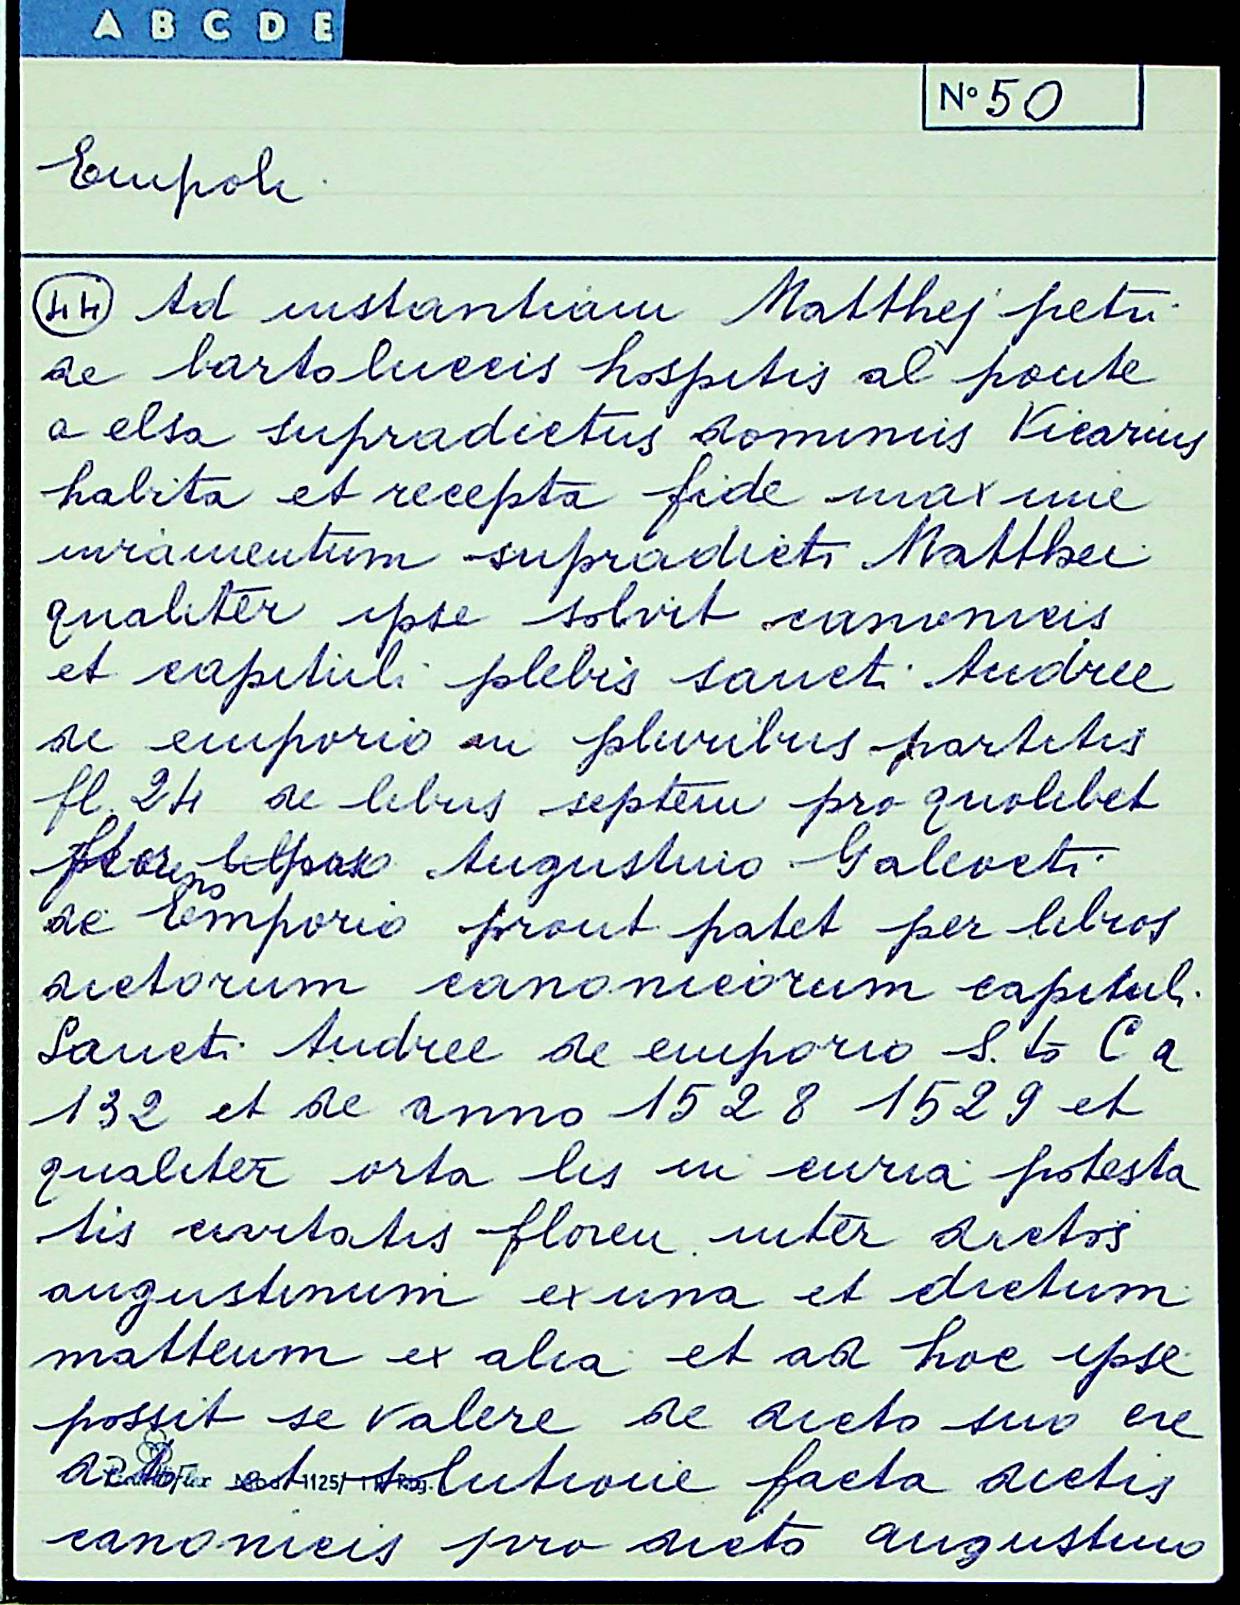 A B C D E
Nº 50
Empoli
44 Ad instantiam Matthej petri
de bartoluccis hospitis al ponte
a elsa supradictus dominus Vicarius
habita et recepta fide maxime
iuramentum supradicti Matthei
qualiter ipse solvit canonicis
et capituli plebis sancti Andree
de emporio in pluribus partitis
fl. 24 de libris septem pro quolibet
floreno Augustino Galeocti
de Emporio prout patet per libros
dictorum canonicorum capituli
Sancti Andree de emporio S. to C a
132 et de anno 1528 1529 et
qualiter orta lis in curia potesta
tis civitatis floren. inter dictos
augustinum ex una et dictum
matteum ex alia et ad hoc ipse
possit se valere de dicto suo cre
dito et solutione facta dictis
canonicis pro dicto augustino